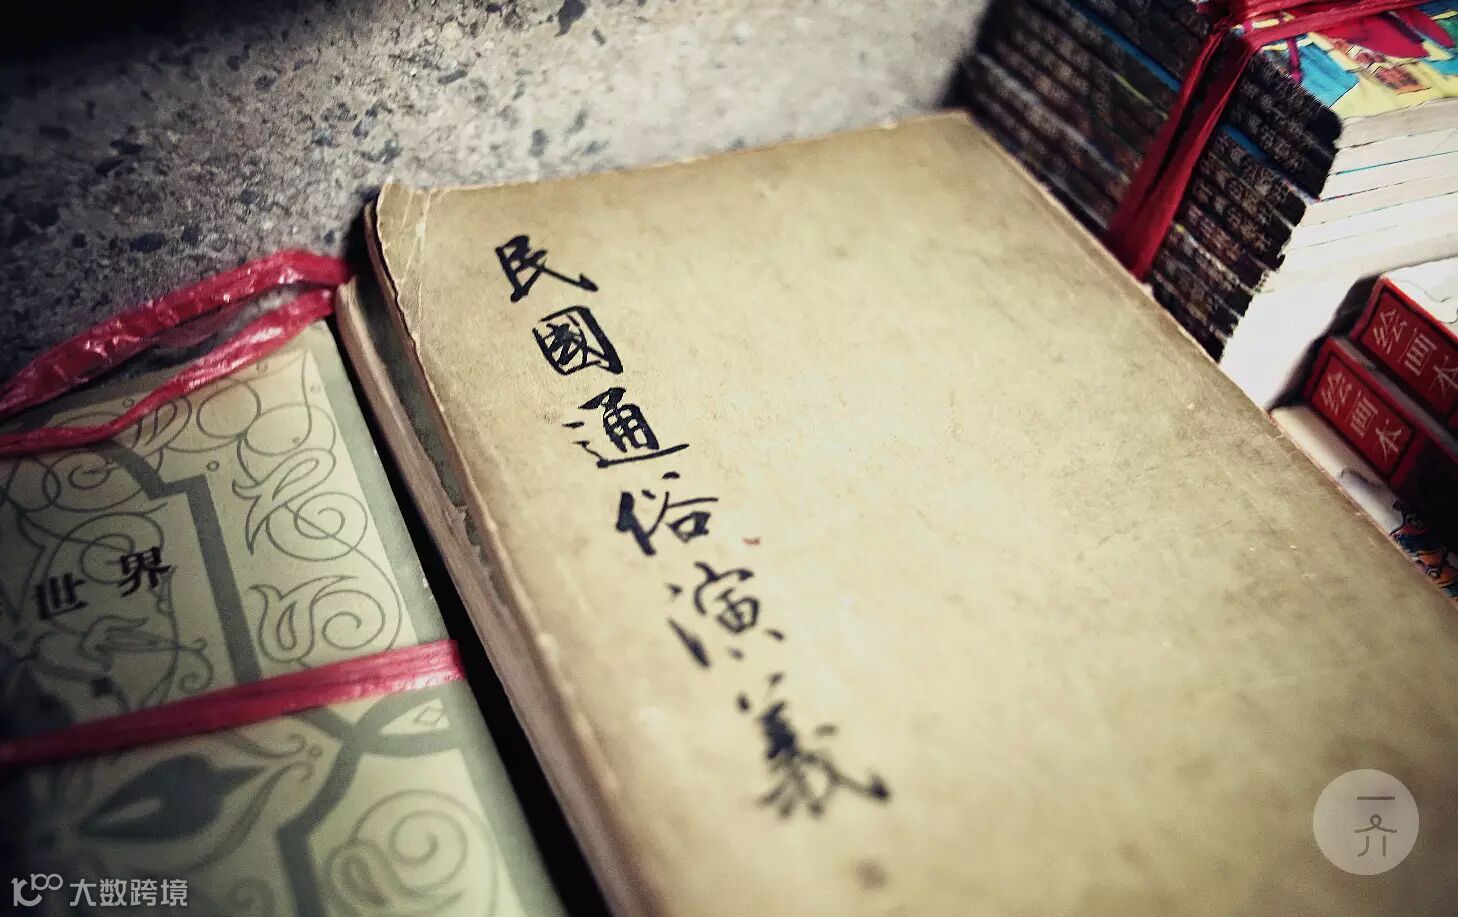 民國通俗演義
世界
绘画本
绘画本
一介
大数跨境